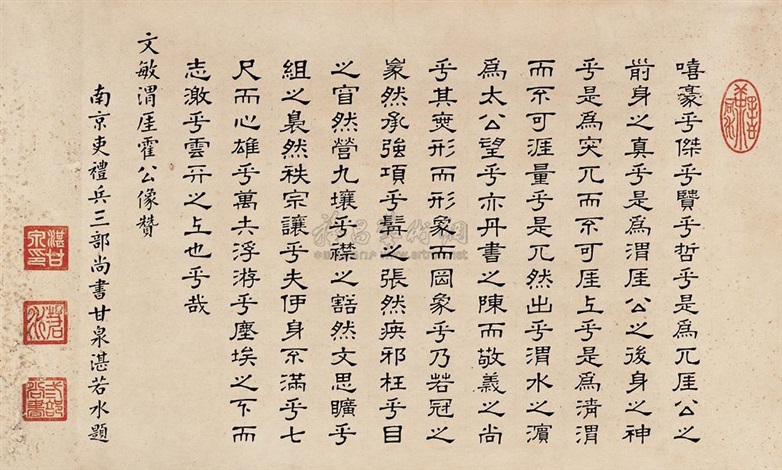 嘻豪乎傑乎賢乎哲乎是爲兀厓公之
前身之真乎是爲渭厓公之後身之神
乎是爲突兀而不可厓上乎是爲淸渭
而不可涯量乎是兀然出乎渭水之濵
爲太公望乎亦丹書之陳而敬義之尚
乎其形而形象而罔象乎乃若冠之
然承強項乎之張然疾邪枉乎目
之窅然營九壤乎襟之豁然文思曠乎
組之裊然秩宗讓乎夫伊身不滿乎七
尺而心雄乎萬夫浮游乎塵埃之下而
志激乎雲之上也乎哉
文敏渭厓霍公像贊
南京吏禮兵三部尚書甘泉湛若水題
湛甘泉印
若水